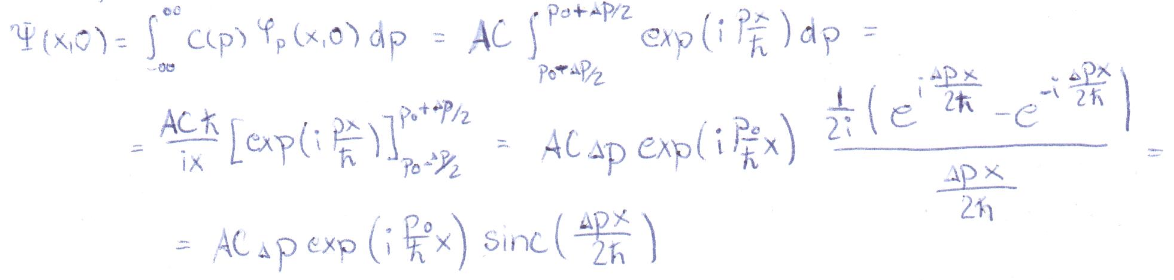 Ψ(x,0) = ∫_{-∞}^{∞} C(p) φ_p(x,0) dp = AC ∫_{p₀-Δp/2}^{p₀+Δp/2} exp(i px/ħ) dp =
= ACħ/(ix) [exp(i px/ħ)]_{p₀-Δp/2}^{p₀+Δp/2} = AC Δp exp(i p₀/ħ x) (1/(2i) (e^{i Δpx/2ħ} - e^{-i Δpx/2ħ}))/(Δpx/2ħ) =
= AC Δp exp(i p₀/ħ x) sinc(Δpx/2ħ)